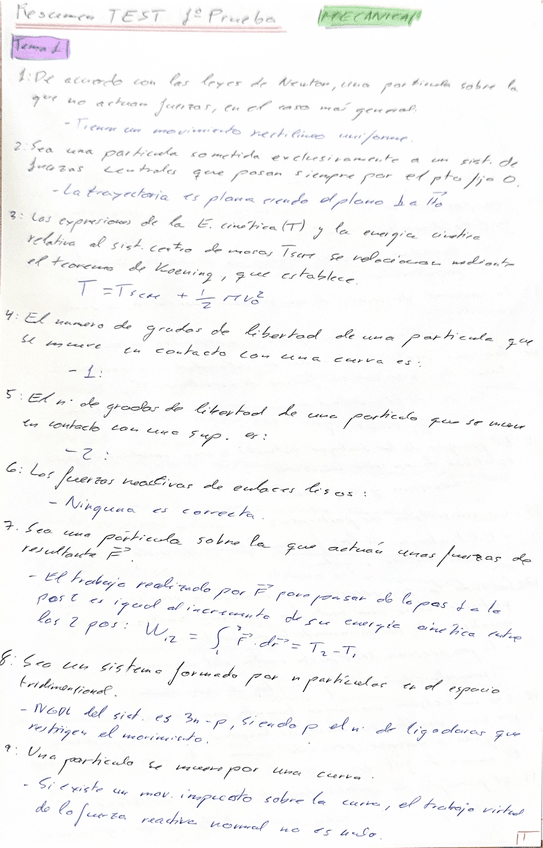 Resumen TEST 1ª Prueba MECANICA
Tema 1
1: De acuerdo con las leyes de Newton, una particula sobre la
que no actuan fuerzas, en el caso mas general.
- Tienen un movimiento rectilineo uniforme.
2. Sea una particula sometida exclusivamente a un sist. de
fuerzas centrales que pasan siempre por el pto fijo O.
- La trayectoria es plana siendo el plano ⊥ a H₀
3: Las expresiones de la E. cinetica (T) y la energia cinetica
relativa al sist. centro de masas Tscm se relacionan mediante
el teorema de Koening, que establece.
T = Tscm + 1/2 M v₀²
4: El numero de grados de libertad de una particula que
se mueve en contacto con una curva es:
- 1:
5: El nº de grados de libertad de una particula que se mueve
en contacto con una sup. es:
- 2:
6: Las fuerzas reactivas de enlaces lisos:
- Ninguna es correcta.
7. Sea una párticula sobre la que actuán unas fuerzas de
resultante F⃗.
- El trabajo realizado por F⃗ para pasar de la pos 1 a la
pos 2 es igual al incremento de su energia cinética entre
las 2 pos: W₁₂ = ∫₁² F⃗·dr⃗ = T₂ - T₁
8: Sea un sistema formado por n particulas en el espacio
tridimensional.
- NGDL del sist. es 3n-p, siendo p el nº de ligaduras que
restrigen el movimiento.
9: Una particula se mueve por una curva.
- Si existe un mov. impuesto sobre la curva, el trabajo virtual
de la fuerza reactiva normal no es nulo.
1